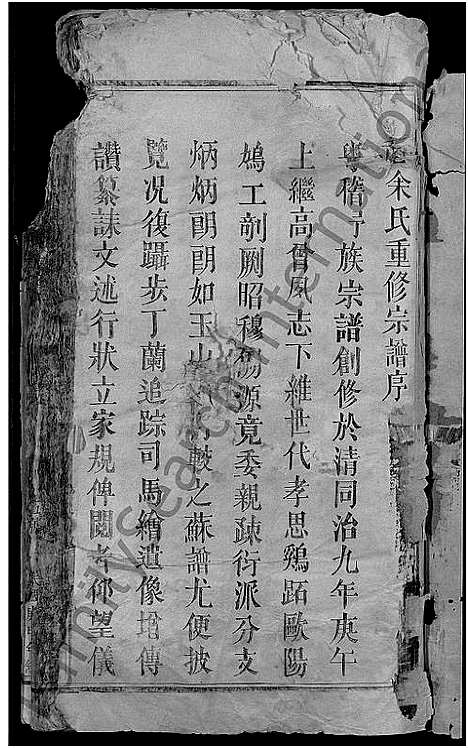 余氏重修宗譜序
粵稽㝵族宗譜創修於清同治九年庚午
上繼高曾夙志下維世代孝思鷄跖歐陽
鳩工剞劂昭穆源竟委親疎衍派分支
炳炳朗朗如玉山較之蘇譜尤便披
覽況復躡步丁蘭追踪司馬繪遺像增傳
讚纂誄文述行狀立家規俾閱者仰望儀
FamilySearch International